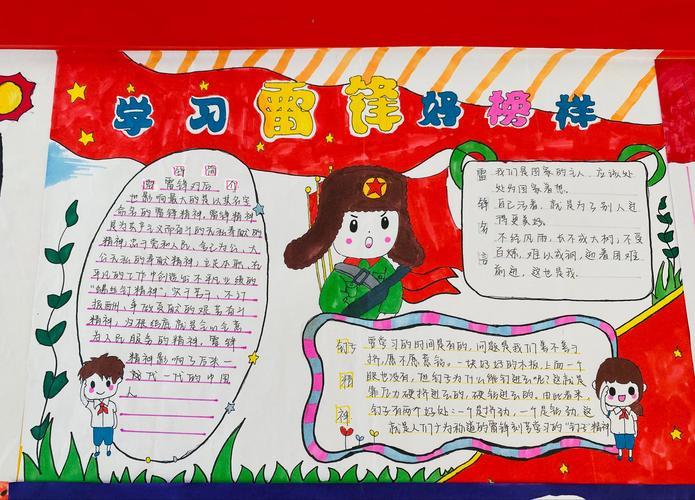 学习雷锋好榜样
诗词
雷锋对后
世影响最大的是以其名字
命名的雷锋精神,雷锋精神
精神,忠于党和人民、舍己为公、大
公无私的奉献精神;立足本职、在
平凡的工作中创造出不平凡业绩的
“螺丝钉精神”;苦干实干、不计
报酬、争做贡献的艰苦奋斗
精神,归根结底就是全心全意
为人民服务的精神,雷锋
精神影响了
一代一代的中国
人
雷锋名言
我们是国家的主人,应该处
处为国家着想。
自己活着,就是为了别人过
得更美好。
不经风雨,长不成大树,不受
百炼,难以成钢,迎着困难
前进,这也是我。
钉子精神
要学习的时间是有的,问题是我们善不善于
挤,愿不愿意钻。一块好好的木板,上面一个
眼也没有,但钉子为什么能钉进去呢?这就是
靠压力硬挤进去的,硬钻进去的,由此看来,
钉子有两个好处:一个是挤劲,一个是钻劲,这
就是人们广为知道的雷锋刻苦学习的“钉子”精神